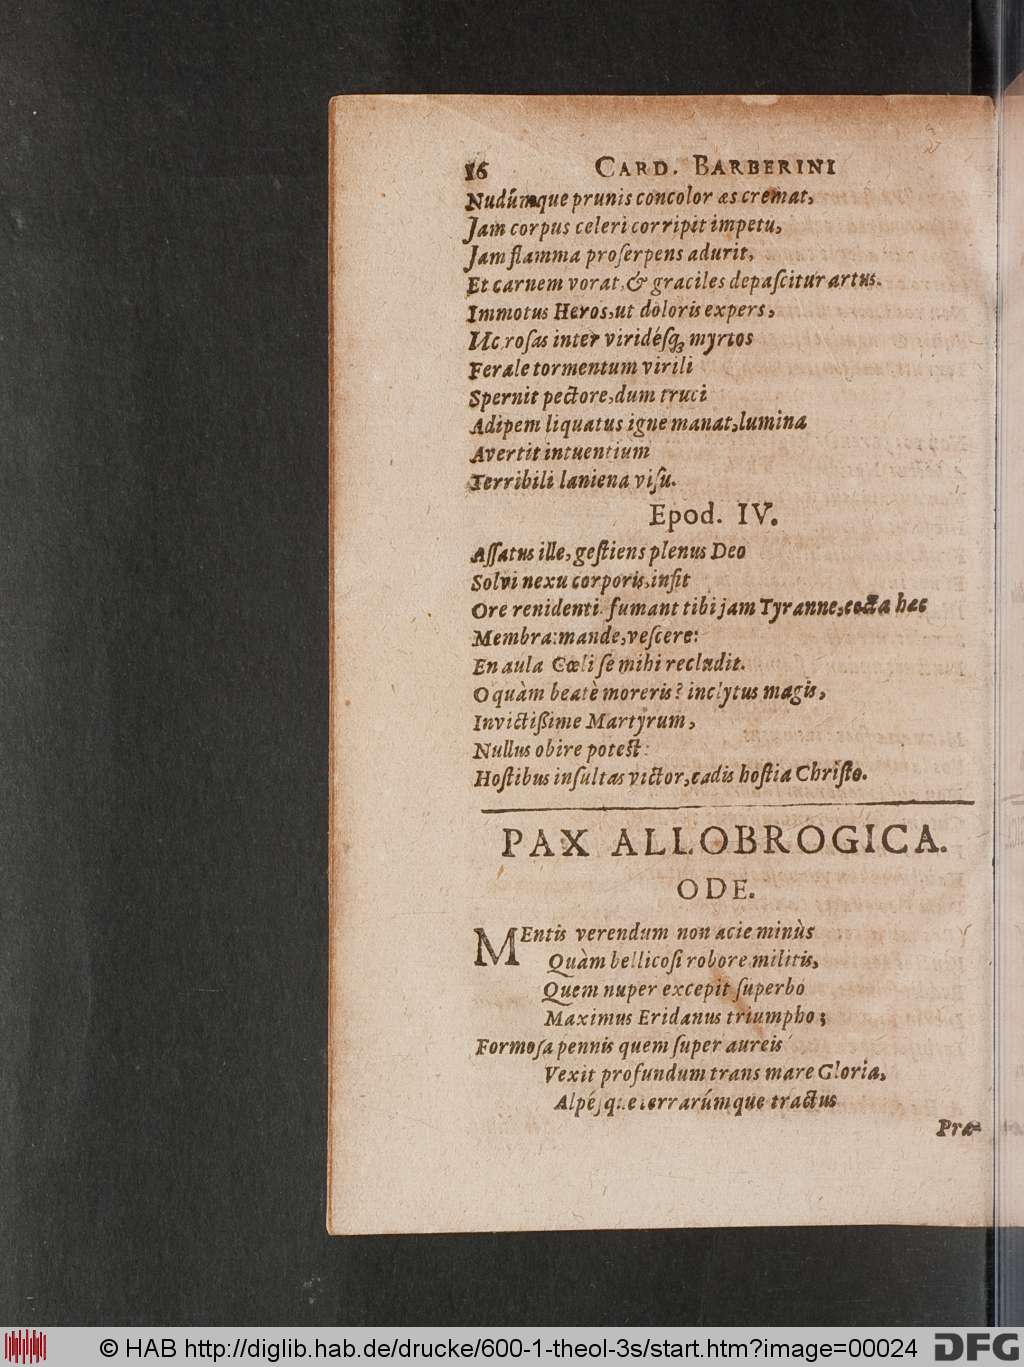 16 CARD. BARBERINI
Nudúmque prunis concolor æs cremat,
Jam corpus celeri corripit impetu,
Jam flamma proſerpens adurit,
Et carnem vorat, & graciles depaſcitur artus.
Immotus Heros, ut doloris expers,
Ac roſas inter viridéſq; myrtos
Ferale tormentum virili
Spernit pectore, dum truci
Adipem liquatus igne manat, lumina
Avertit intuentium
Terribili laniena viſu.
Epod. IV.
Aſſatus ille, geſtiens plenus Deo
Solvi nexu corporis, inſit
Ore renidenti. fumant tibi jam Tyranne, cocta hæc
Membra: mande, veſcere:
En aula Cœli ſe mihi recludit.
O quàm beatè moreris? inclytus magis,
Invictißime Martyrum,
Nullus obire poteſt:
Hoſtibus inſultas victor, cadis hoſtia Chriſto.
PAX ALLOBROGICA.
ODE.
MEntis verendum non acie minùs
Quàm bellicoſi robore militis,
Quem nuper excepit ſuperbo
Maximus Eridanus triumpho;
Formoſa pennis quem ſuper aureis
Vexit profundum trans mare Gloria,
Alpéſque terrarúmque tractus
Præ-
© HAB http://diglib.hab.de/drucke/600-1-theol-3s/start.htm?image=00024 DFG